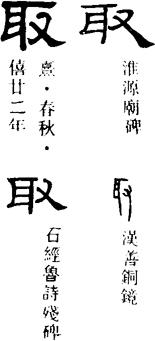 取
淮源廟碑
取
熹·春秋·
僖廿二年
取
漢善銅鏡
取
石經魯詩殘碑